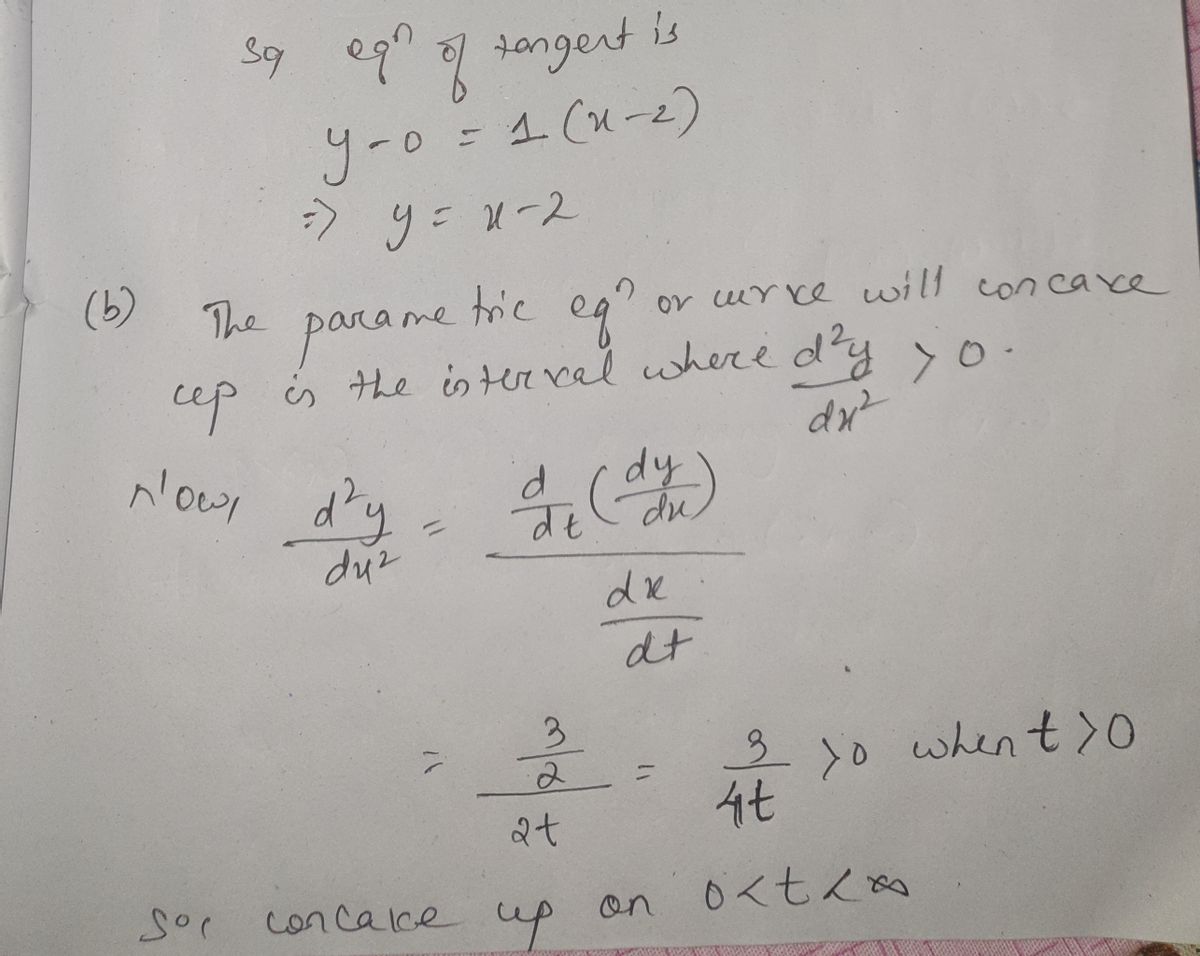 So eqⁿ of tangent is
y-0 = 1 (x-2)
=> y = x-2
(b) The parametric eqⁿ or curve will concave
up is the interval where d²y/dx² > 0.
Now, d²y/dx² = d/dt (dy/dx) / dx/dt
= 3/2 / 2t = 3/4t > 0 when t > 0
So, concave up on 0 < t < ∞